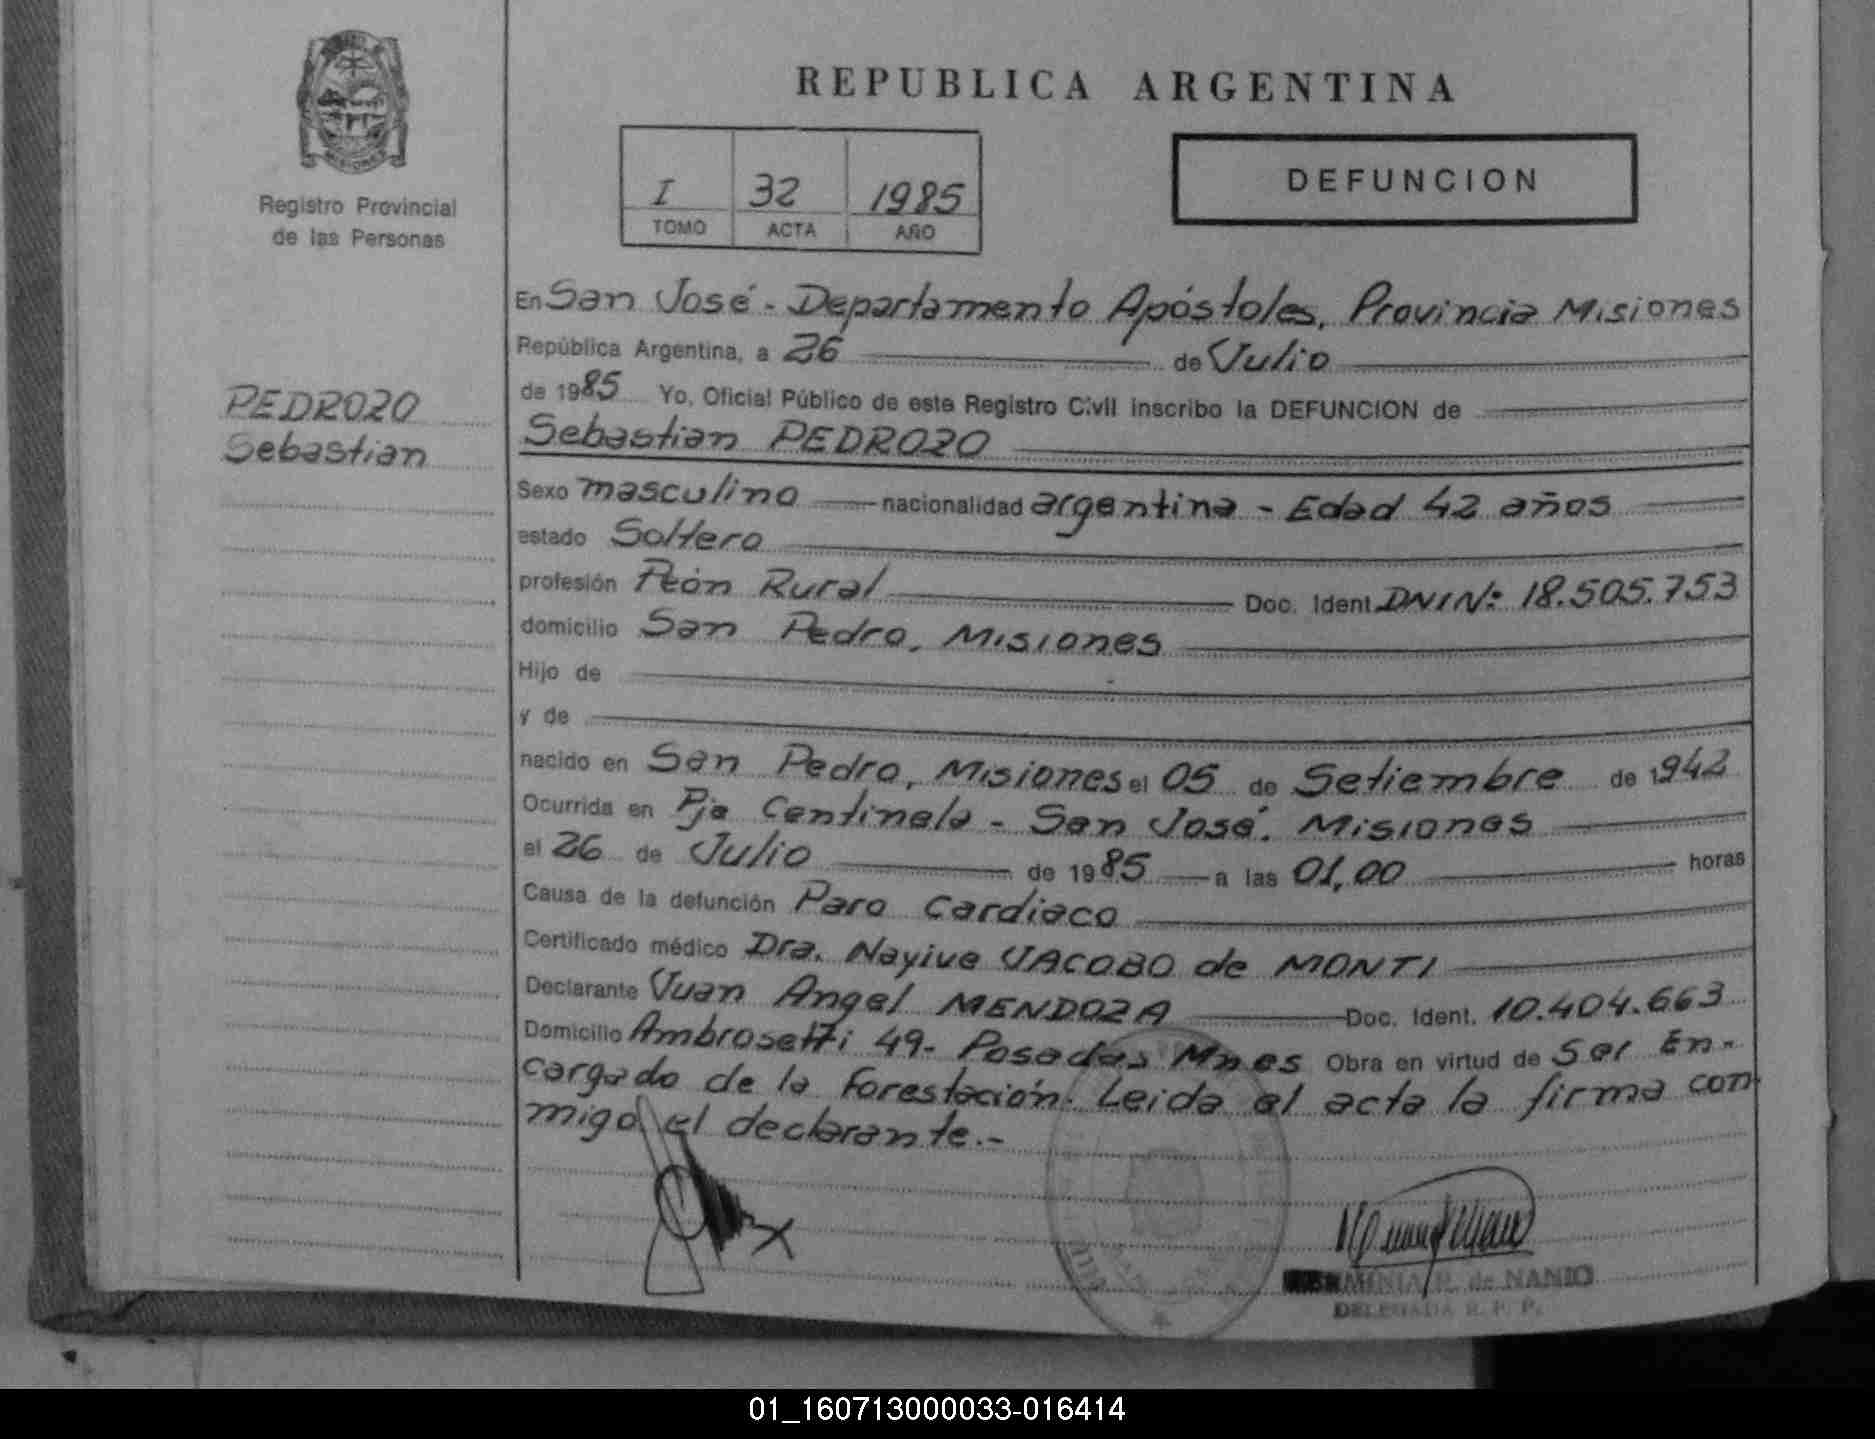 REPUBLICA ARGENTINA
MISIONES
Registro Provincial
de las Personas
I 32 1985
TOMO ACTA AÑO
DEFUNCION
PEDROZO
Sebastian
En San José - Departamento Apóstoles, Provincia Misiones
República Argentina, a 26 de Julio
de 1985 Yo, Oficial Público de este Registro Civil inscribo la DEFUNCION de
Sebastian PEDROZO
Sexo masculino nacionalidad argentina - Edad 42 años
estado Soltero
profesión Peón Rural Doc. Ident. DNIN: 18.505.753
domicilio San Pedro, Misiones
Hijo de
y de
nacido en San Pedro, Misiones el 05 de Setiembre de 1942
Ocurrida en Pje Centinela - San José. Misiones
el 26 de Julio de 1985 a las 01,00 horas
Causa de la defunción Paro Cardiaco
Certificado médico Dra. Nayive JACOBO de MONTI
Declarante Juan Angel MENDOZA Doc. Ident. 10.404.663
Domicilio Ambrosetti 49- Posadas Mnes Obra en virtud de Ser En-
cargado de la Forestación. Leida el acta la firma con
migo el declarante.-
R. de NANIO
DELEGADA R. P. P.
01_160713000033-016414